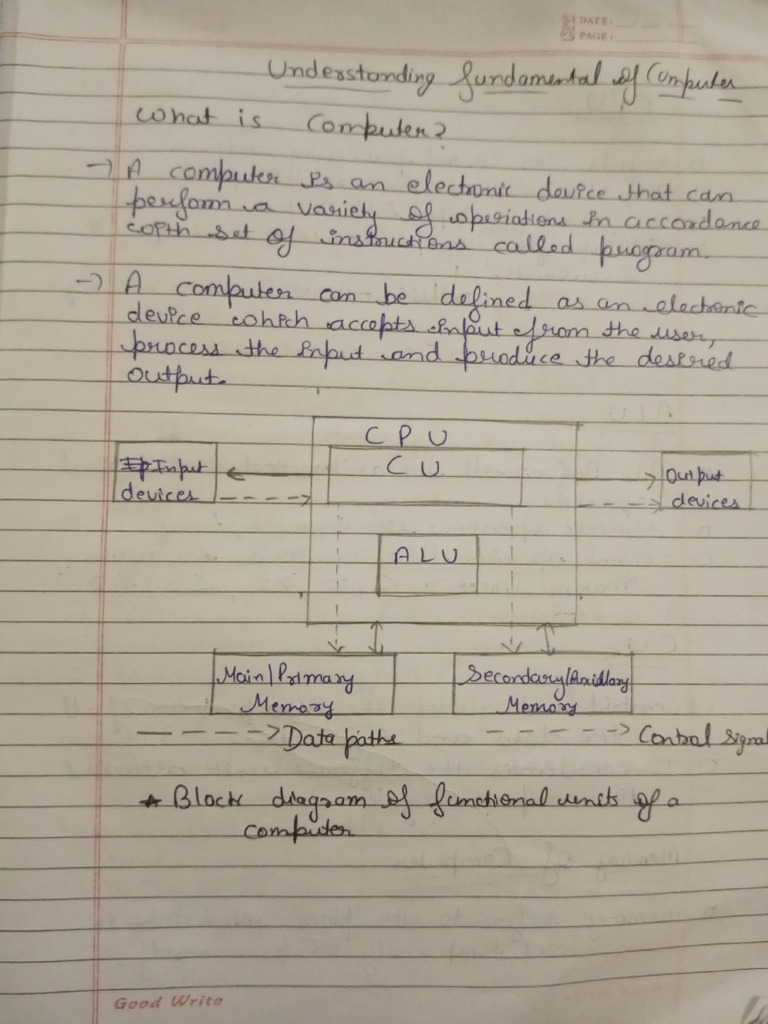 DATE:
PAGE:
Understanding fundamental of Computer
What is Computer?
→ A computer is an electronic device that can
perform a variety of operations in accordance
with set of instructions called program.
→ A computer can be defined as an electronic
device which accepts input from the user,
process the input and produce the desired
output.
CPU
CU
Input
devices
Output
devices
ALU
Main/Primary
Memory
Secondary/Axidlary
Memory
Data paths
Control signal
★ Block diagram of functional units of a
computer
Good Write